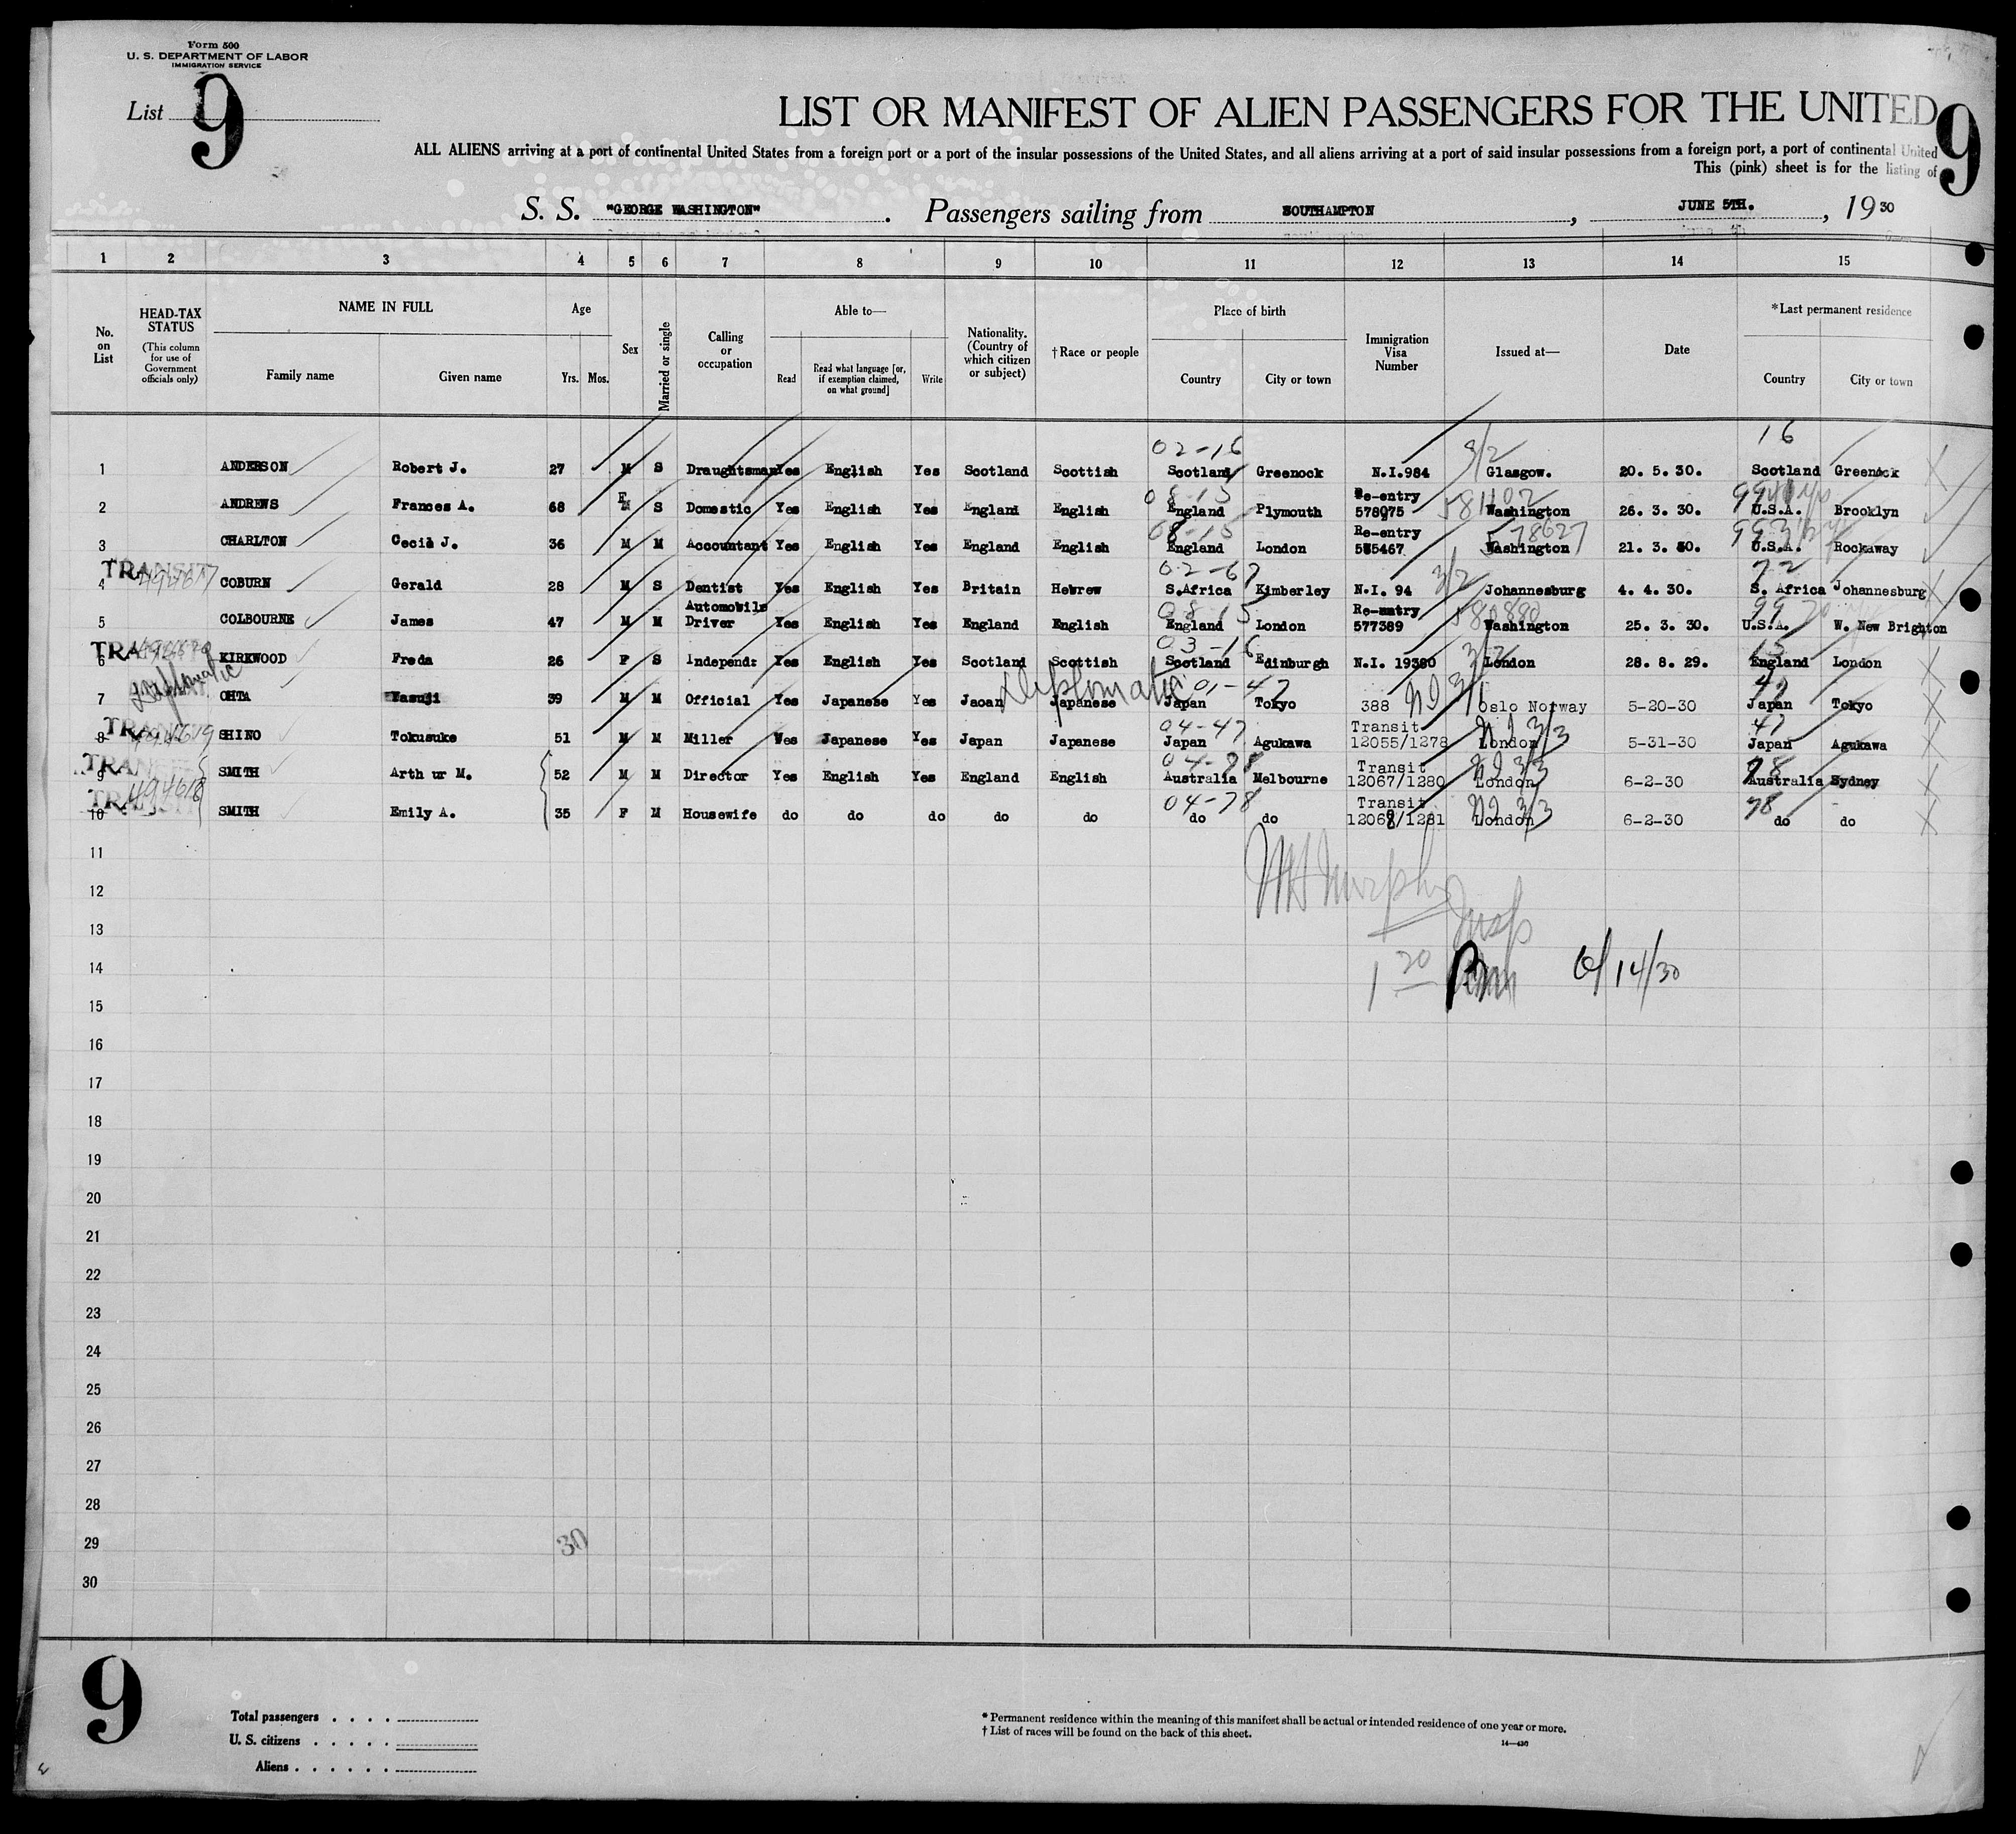 Form 500
U. S. DEPARTMENT OF LABOR
IMMIGRATION SERVICE
List 9
9
LIST OR MANIFEST OF ALIEN PASSENGERS FOR THE UNITED
ALL ALIENS arriving at a port of continental United States from a foreign port or a port of the insular possessions of the United States, and all aliens arriving at a port of said insular possessions from a foreign port, a port of continental United
This (pink) sheet is for the listing of
S. S. "GEORGE WASHINGTON". Passengers sailing from SOUTHAMPTON, JUNE 5TH., 1930
1 2 3 4 5 6 7 8 9 10 11 12 13 14 15
No. on List
HEAD-TAX STATUS
(This column for use of Government officials only)
NAME IN FULL
Family name
Given name
Age
Yrs. Mos.
Sex
Married or single
Calling or occupation
Able to—
Read
Read what language [or, if exemption claimed, on what ground]
Write
Nationality. (Country of which citizen or subject)
†Race or people
Place of birth
Country
City or town
Immigration Visa Number
Issued at—
Date
*Last permanent residence
Country
City or town
02-16 3/2 16
1 ANDERSON Robert J. 27 M S Draughtsman Yes English Yes Scotland Scottish Scotland Greenock N.I.984 Glasgow. 20. 5. 30. Scotland Greenock
08-15 Re-entry 581102 99
2 ANDREWS Frances A. 68 F S Domestic Yes English Yes England English England Plymouth 578075 Washington 26. 3. 30. U.S.A. Brooklyn
08-15 Re-entry 578627 99
3 CHARLTON Cecil J. 36 M M Accountant Yes English Yes England English England London 585467 Washington 21. 3. 30. U.S.A. Rockaway
TRANSIT 02-67 3/2 72
4 COBURN Gerald 28 M S Dentist Yes English Yes Britain Hebrew S.Africa Kimberley N.I. 94 Johannesburg 4. 4. 30. S. Africa Johannesburg
Automobile 08-15 Re-entry 580880 99
5 COLBOURNE James 47 M M Driver Yes English Yes England English England London 577389 Washington 25. 3. 30. U.S.A. W. New Brighton
TRANSIT 03-16 3/2 15
6 KIRKWOOD Freda 26 F S Independ: Yes English Yes Scotland Scottish Scotland Edinburgh N.I. 19380 London 28. 8. 29. England London
Diplomatic Diplomatic 01-47 3/1 47
7 OHTA Yasuji 39 M M Official Yes Japanese Yes Jaoan Japanese Japan Tokyo 388 Oslo Norway 5-20-30 Japan Tokyo
TRANSIT 494619 04-47 Transit 3/3 47
8 SHINO Tokusuke 51 M M Miller Yes Japanese Yes Japan Japanese Japan Agukawa 12055/1278 London 5-31-30 Japan Agukawa
TRANSIT 04-78 Transit 3/3 78
9 SMITH Arth ur M. 52 M M Director Yes English Yes England English Australia Melbourne 12067/1280 London 6-2-30 Australia Sydney
TRANSIT 494618 04-78 Transit 3/3 78
10 SMITH Emily A. 35 F M Housewife do do do do do do do 12068/1281 London 6-2-30 do do
11
12
Murphy
13
Insp
14
1 20 6/14/30
15
16
17
18
19
20
21
22
23
24
25
26
27
28
29
30
30
9
Total passengers . . . .
U. S. citizens . . . . .
Aliens . . . . . .
* Permanent residence within the meaning of this manifest shall be actual or intended residence of one year or more.
† List of races will be found on the back of this sheet.
14—430